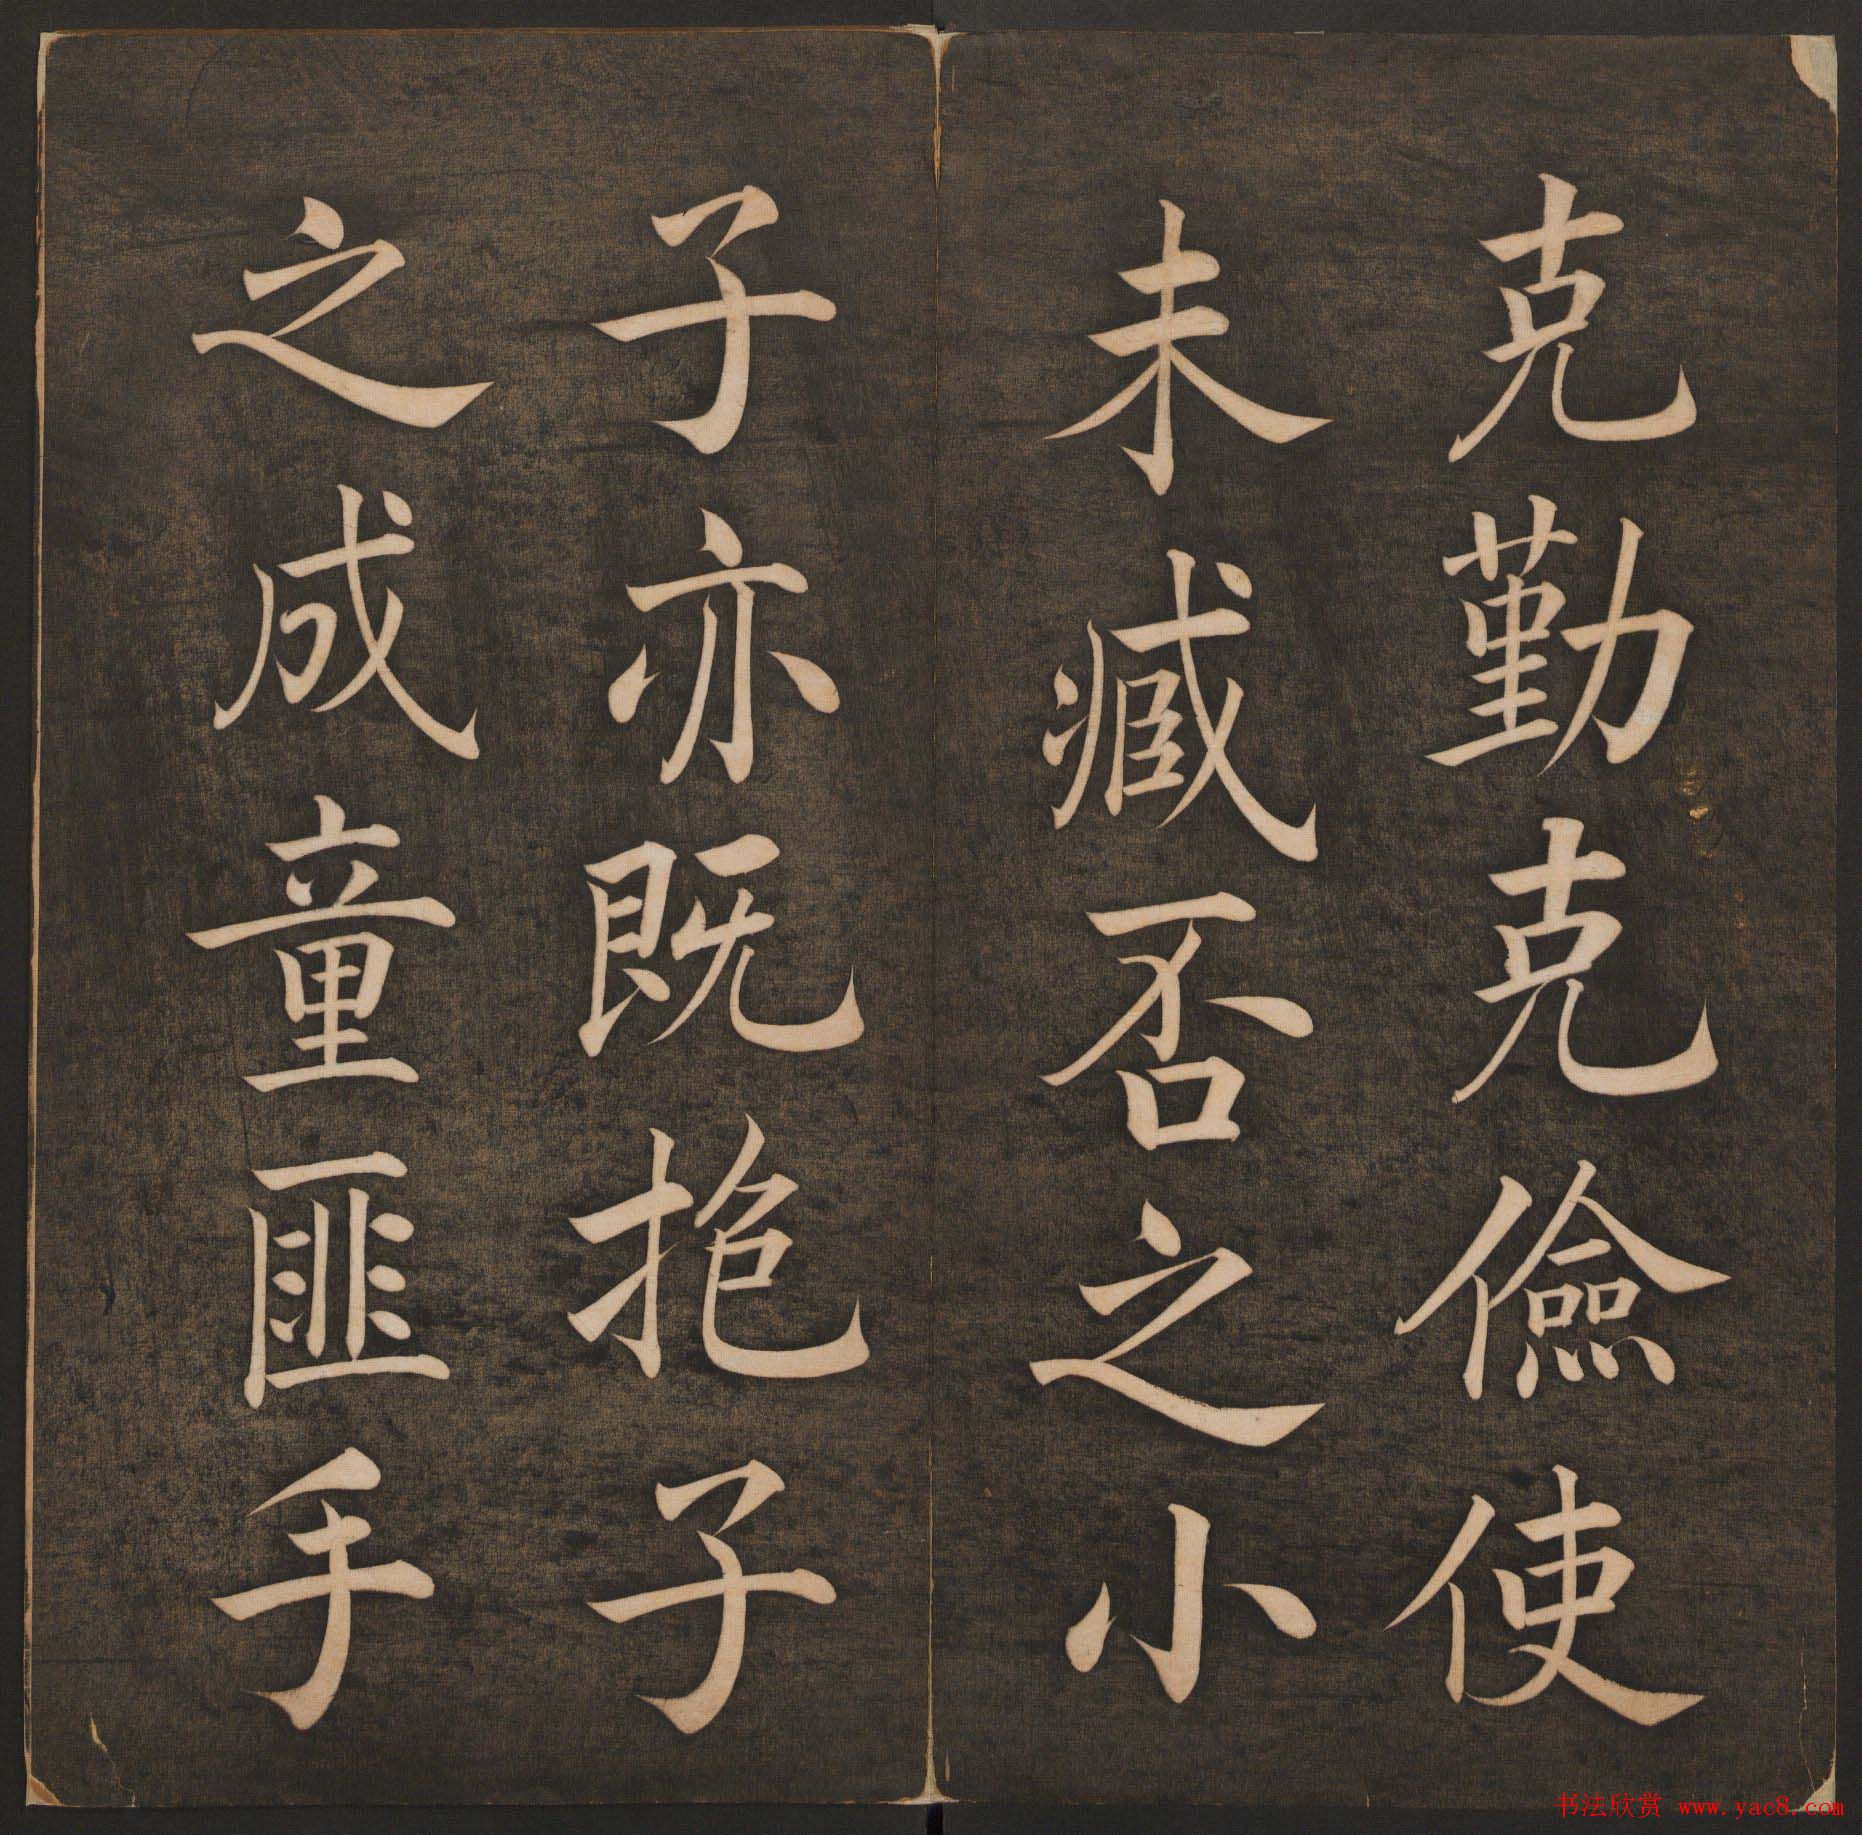 克勤克儉使
未臧否之小
子亦既抱子
之成童匪手
书法欣赏 www.yac8.com